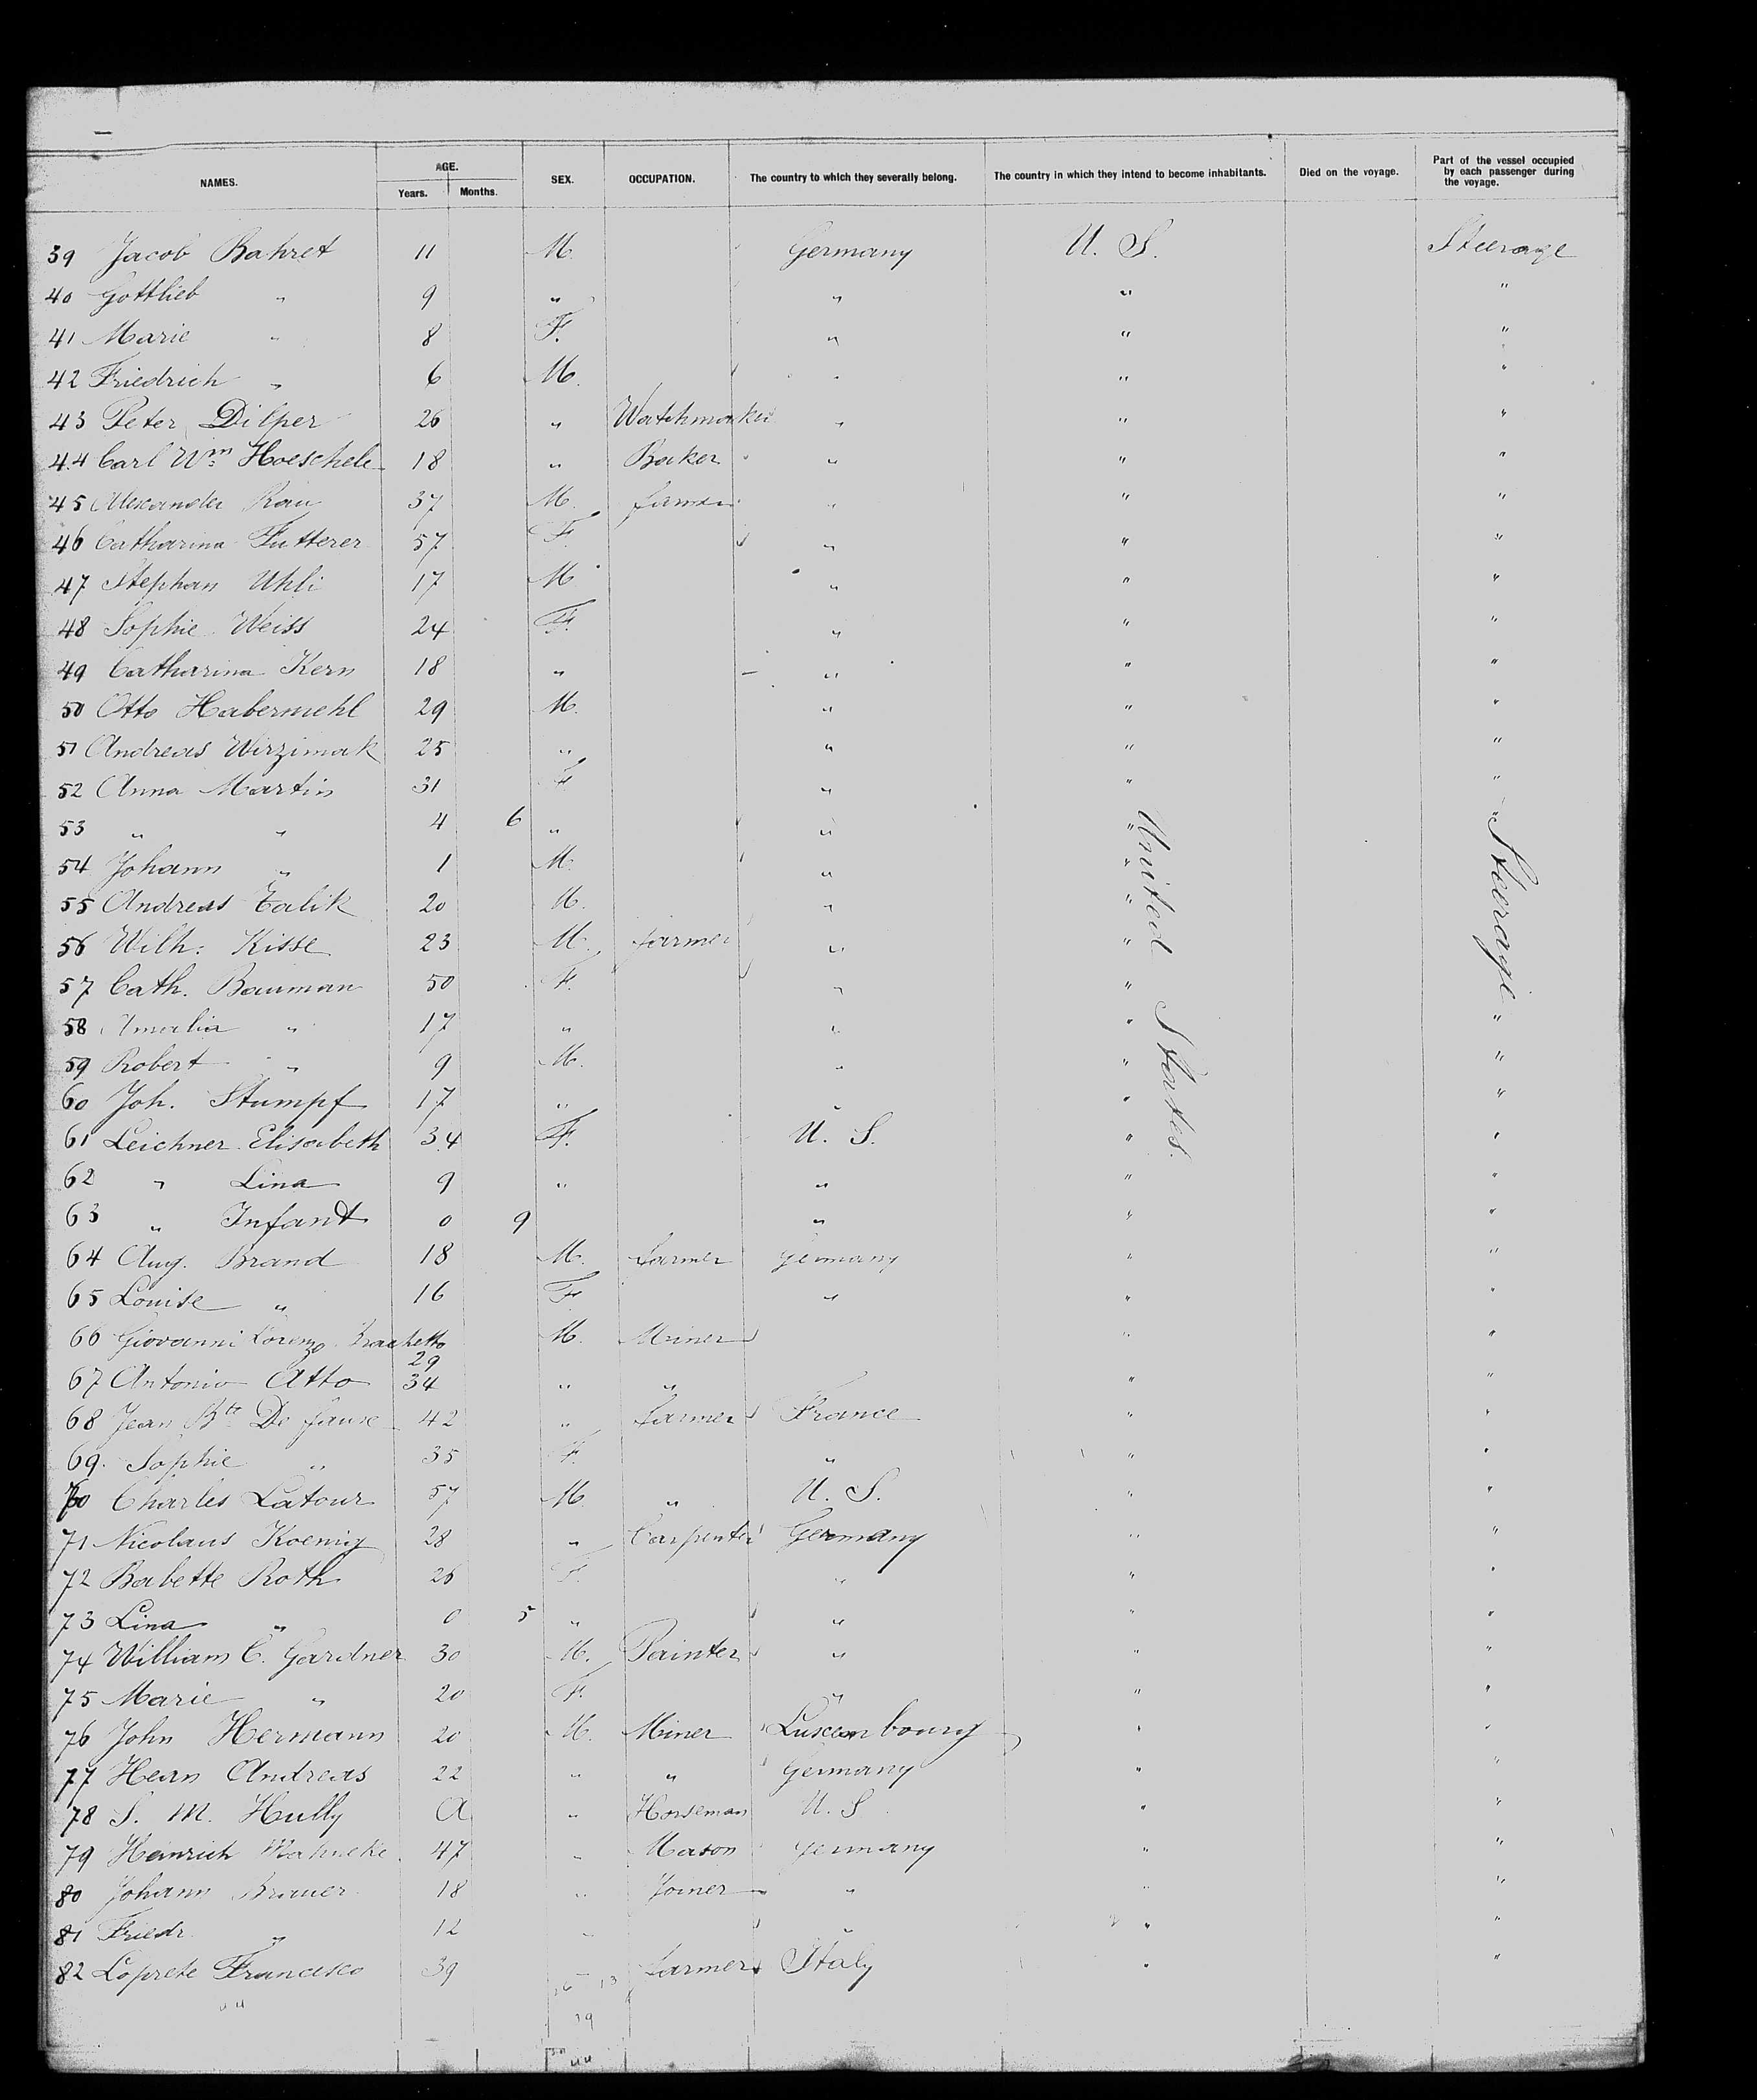 NAMES. AGE. Years. Months. SEX. OCCUPATION. The country to which they severally belong. The country in which they intend to become inhabitants. Died on the voyage. Part of the vessel occupied by each passenger during the voyage.
39 Jacob Bahret 11 M. Germany U. S. Steerage
40 Gottlieb " 9 " " " "
41 Marie " 8 F. " " "
42 Friedrich " 6 M. " " "
43 Peter Dilper 26 " Watchmaker " " "
44 Carl Wm Hoeschele 18 " Baker " " "
45 Alexander Rau 37 M. farmer " " "
46 Catharina Futterer 57 F. " " "
47 Stephan Uhli 17 M " " "
48 Sophie Weiss 24 F. " " "
49 Catharina Kern 18 " " " "
50 Otto Habermehl 29 M. " " "
51 Andreas Wirzimak 25 " " " "
52 Anna Martin 31 F " " "
53 " " 4 6 " " " "
54 Johann " 1 M. " " "
55 Andreas Talik 20 M. " " "
56 Wilh: Kisse 23 M. farmer " " "
57 Cath. Bauman 50 F. " " "
58 Amalia " 17 " " " "
59 Robert " 9 M. " " "
60 Joh. Stumpf 17 " " " "
United States.
Steerage
61 Leichner Elisabeth 34 F. U. S. " "
62 " Lina 9 " " " "
63 " Infant 0 9 " " "
64 Aug. Brand 18 M. farmer Germany " "
65 Louise " 16 F. " " "
66 Giovanni Lorenzo Brachetto 29 M. Miner " "
67 Antonio Atto 34 " " " "
68 Jean Bte De fause 42 " farmer France " "
69. Sophie " 35 F. " " "
70 Charles Latour 57 M. " U. S. " "
71 Nicolaus Koenig 28 " Carpenter Germany " "
72 Babette Roth 26 F. " " "
73 Lina " 0 5 " " " "
74 William C. Gardner 30 M. Painter " " "
75 Marie " 20 F. " " "
76 John Hermann 20 M. Miner Luxembourg " "
77 Hean Andreas 22 " " Germany " "
78 S. M. Hully a " Horseman U. S. " "
79 Heinrich 47 " Mason Germany " "
80 Johann Brauer 18 " Joiner " " "
81 Friedr. " 12 " " " "
82 Loprete Francesco 39 farmer Italy " "